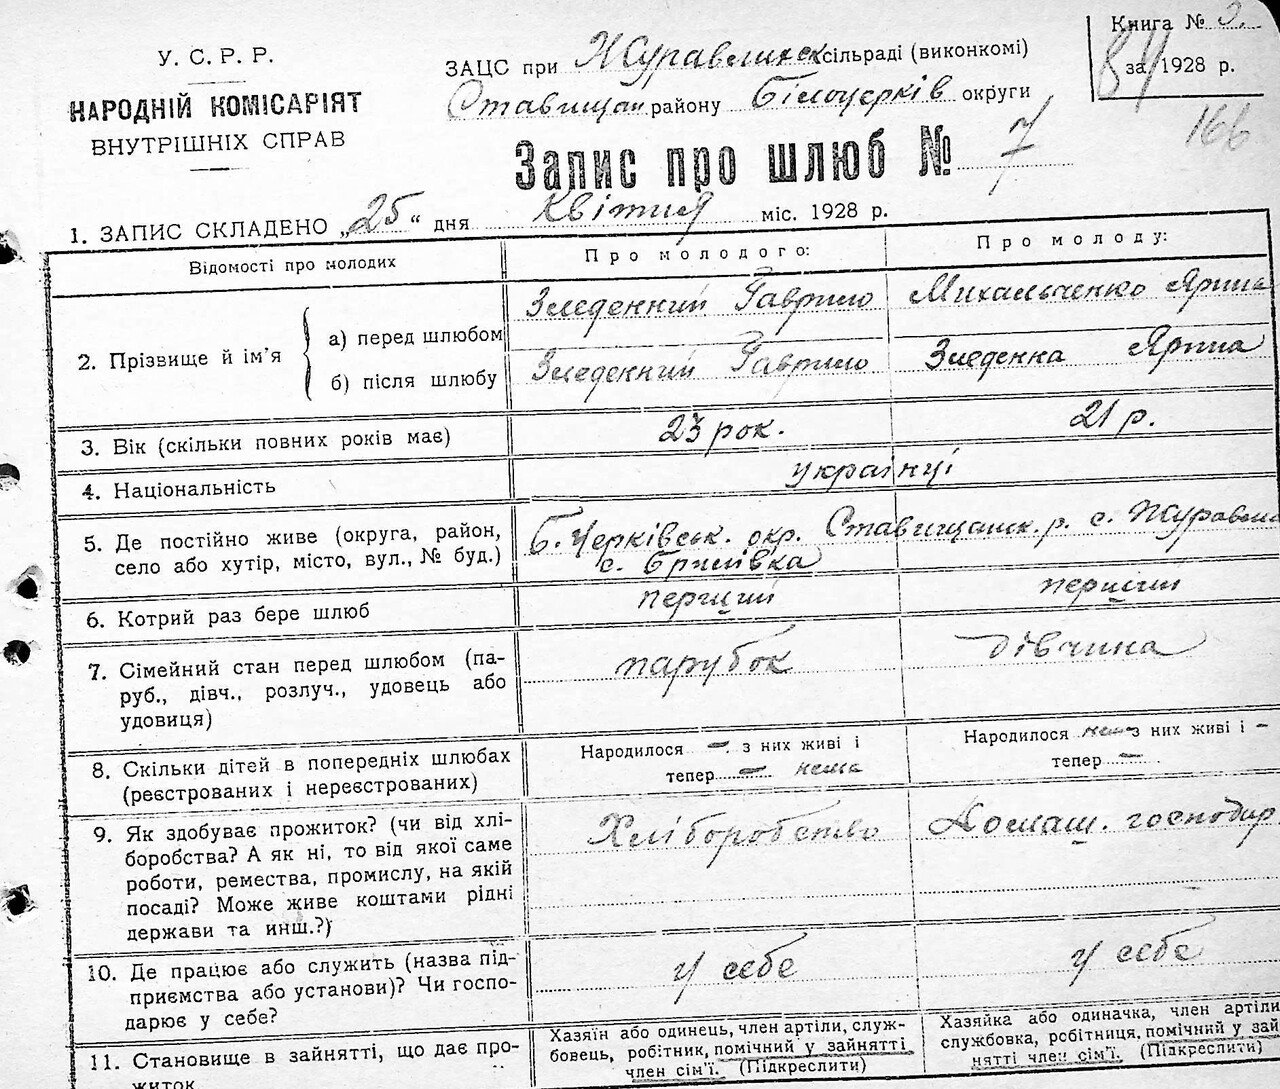 У. С. Р. Р.
НАРОДНІЙ КОМІСАРІЯТ
ВНУТРІШНІХ СПРАВ
ЗАЦС при Журавлинск сільраді (виконкомі)
Ставищан району Білоцерків округи
Книга № 3.
за 1928 р.
84
166
Запис про шлюб № 7
1. ЗАПИС СКЛАДЕНО „25“ дня квітня міс. 1928 р.
Відомості про молодих
Про молодого:
Про молоду:
2. Прізвище й ім’я
а) перед шлюбом
Зледенний Гаврило
Михальченко Ярина
б) після шлюбу
Зледенний Гаврило
Зледенна Ярина
3. Вік (скільки повних років має)
23 рок.
21 р.
4. Національність
українці
5. Де постійно живе (округа, район,
село або хутір, місто, вул., № буд.)
Б. Черківськ. окр. Ставищанск. р. с. Журавл
с. Брилівка
6. Котрий раз бере шлюб
перший
перший
7. Сімейний стан перед шлюбом (па-
руб., дівч., розлуч., удовець або
удовиця)
парубок
дівчина
8. Скільки дітей в попередніх шлюбах
(реєстрованих і нереєстрованих)
Народилося — з них живі і
тепер — нема
Народилося нема з них живі і –
тепер —
9. Як здобуває прожиток? (чи від хлі-
боробства? А як ні, то від якої саме
роботи, ремества, промислу, на якій
посаді? Може живе коштами рідні
держави та инш.?)
Хліборобство
Домаш. господар
10. Де працює або служить (назва під-
приємства або установи)? Чи госпо-
дарює у себе?
у себе
у себе
11. Становище в зайнятті, що дає про-
житок
Хазяїн або одинець, член артіли, служ-
бовець, робітник, помічний у зайнятті
член сім’ї. (Підкреслити)
Хазяйка або одиначка, член артіли
службовка, робітниця, помічний у зай
нятті член сім’ї. (Підкреслити)